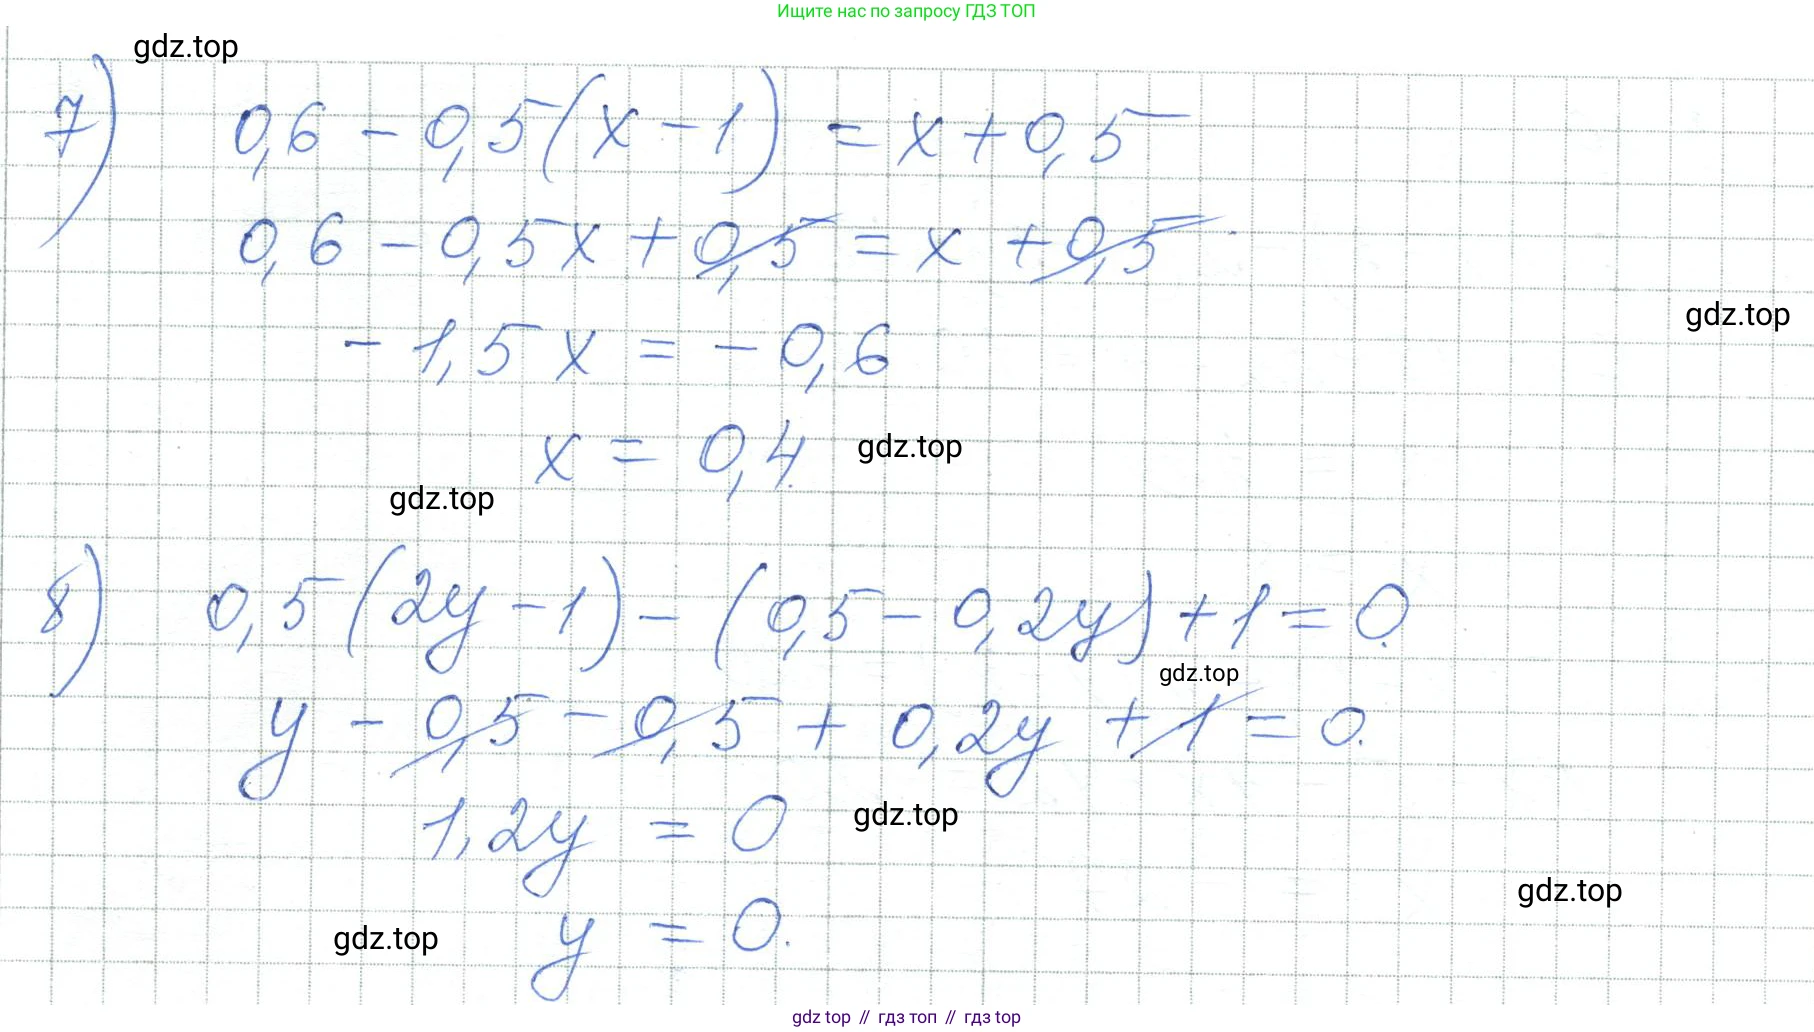 Ищите нас по запросу ГДЗ ТОП
gdz.top
7) 0,6 - 0,5(x - 1) = x + 0,5
0,6 - 0,5x + 0,5 = x + 0,5
gdz.top
- 1,5x = - 0,6
x = 0,4. gdz.top
gdz.top
8) 0,5(2y - 1) - (0,5 - 0,2y) + 1 = 0.
gdz.top
y - 0,5 - 0,5 + 0,2y + 1 = 0.
1,2y = 0 gdz.top
gdz.top
gdz.top y = 0.
gdz top // гдз топ // гдз top